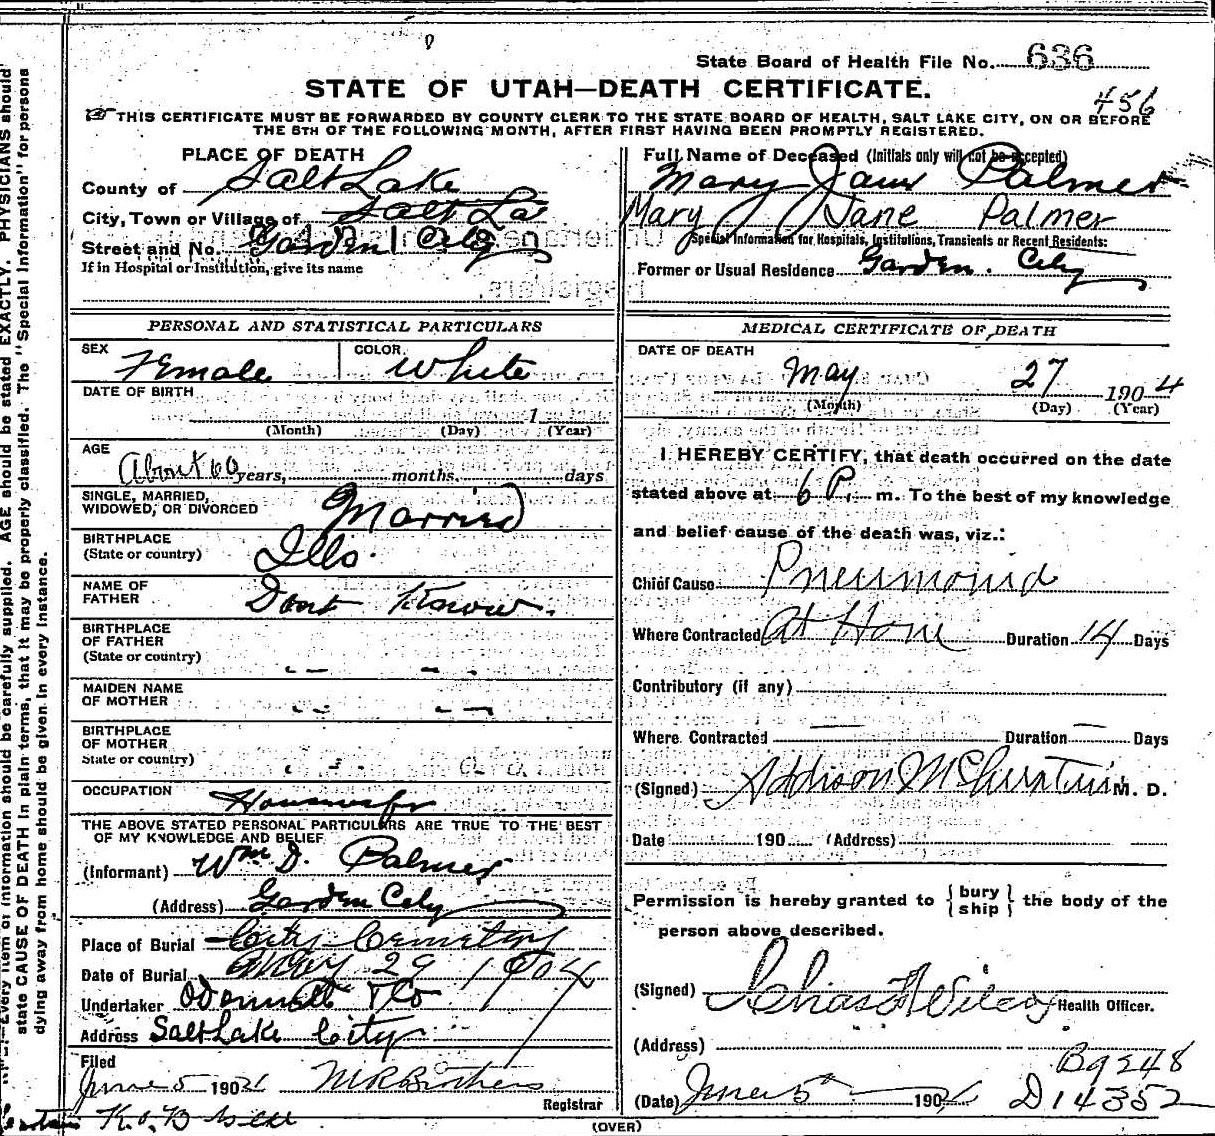 State Board of Health File No. 636
STATE OF UTAH—DEATH CERTIFICATE.
456
THIS CERTIFICATE MUST BE FORWARDED BY COUNTY CLERK TO THE STATE BOARD OF HEALTH, SALT LAKE CITY, ON OR BEFORE
THE 5TH OF THE FOLLOWING MONTH, AFTER FIRST HAVING BEEN PROMPTLY REGISTERED.
PLACE OF DEATH
County of Salt Lake
City, Town or Village of Salt La
Street and No. Garden City
If in Hospital or Institution, give its name
Full Name of Deceased (Initials only will not be accepted)
Mary Jane Palmer
Mary Jane Palmer
Special Information for Hospitals, Institutions, Transients or Recent Residents:
Former or Usual Residence Garden City
PERSONAL AND STATISTICAL PARTICULARS
SEX Female COLOR White
DATE OF BIRTH
1
(Month) (Day) (Year)
AGE
About 60 years, months, days
SINGLE, MARRIED,
WIDOWED, OR DIVORCED Married
BIRTHPLACE
(State or country) Ills.
NAME OF
FATHER Dont Know.
BIRTHPLACE
OF FATHER
(State or country)
MAIDEN NAME
OF MOTHER
BIRTHPLACE
OF MOTHER
State or country)
OCCUPATION Housewife
THE ABOVE STATED PERSONAL PARTICULARS ARE TRUE TO THE BEST
OF MY KNOWLEDGE AND BELIEF
(Informant) Wm D. Palmer
(Address) Garden City
Place of Burial City Cemetery
Date of Burial May 29 1904
Undertaker Odonnell & Co
Address Salt Lake City
Filed
June 5 1904
Registrar
MEDICAL CERTIFICATE OF DEATH
DATE OF DEATH
May 27 1904
(Month) (Day) (Year)
I HEREBY CERTIFY, that death occurred on the date
stated above at 6 P. m. To the best of my knowledge
and belief cause of the death was, viz.:
Chief Cause Pneumonia
Where Contracted At Home Duration 14 Days
Contributory (if any)
Where Contracted Duration Days
(Signed) Addison M. D.
Date 190 (Address)
Permission is hereby granted to { bury
ship } the body of the
person above described.
(Signed) Chas F Wilcox Health Officer.
(Address)
B9248
(Date) June 5" 1904 D14352
(OVER)
Every item of information should be carefully supplied. AGE should be stated EXACTLY. PHYSICIANS should
state CAUSE OF DEATH in plain terms, that it may be properly classified. The "Special Information" for persons
dying away from home should be given in every instance.